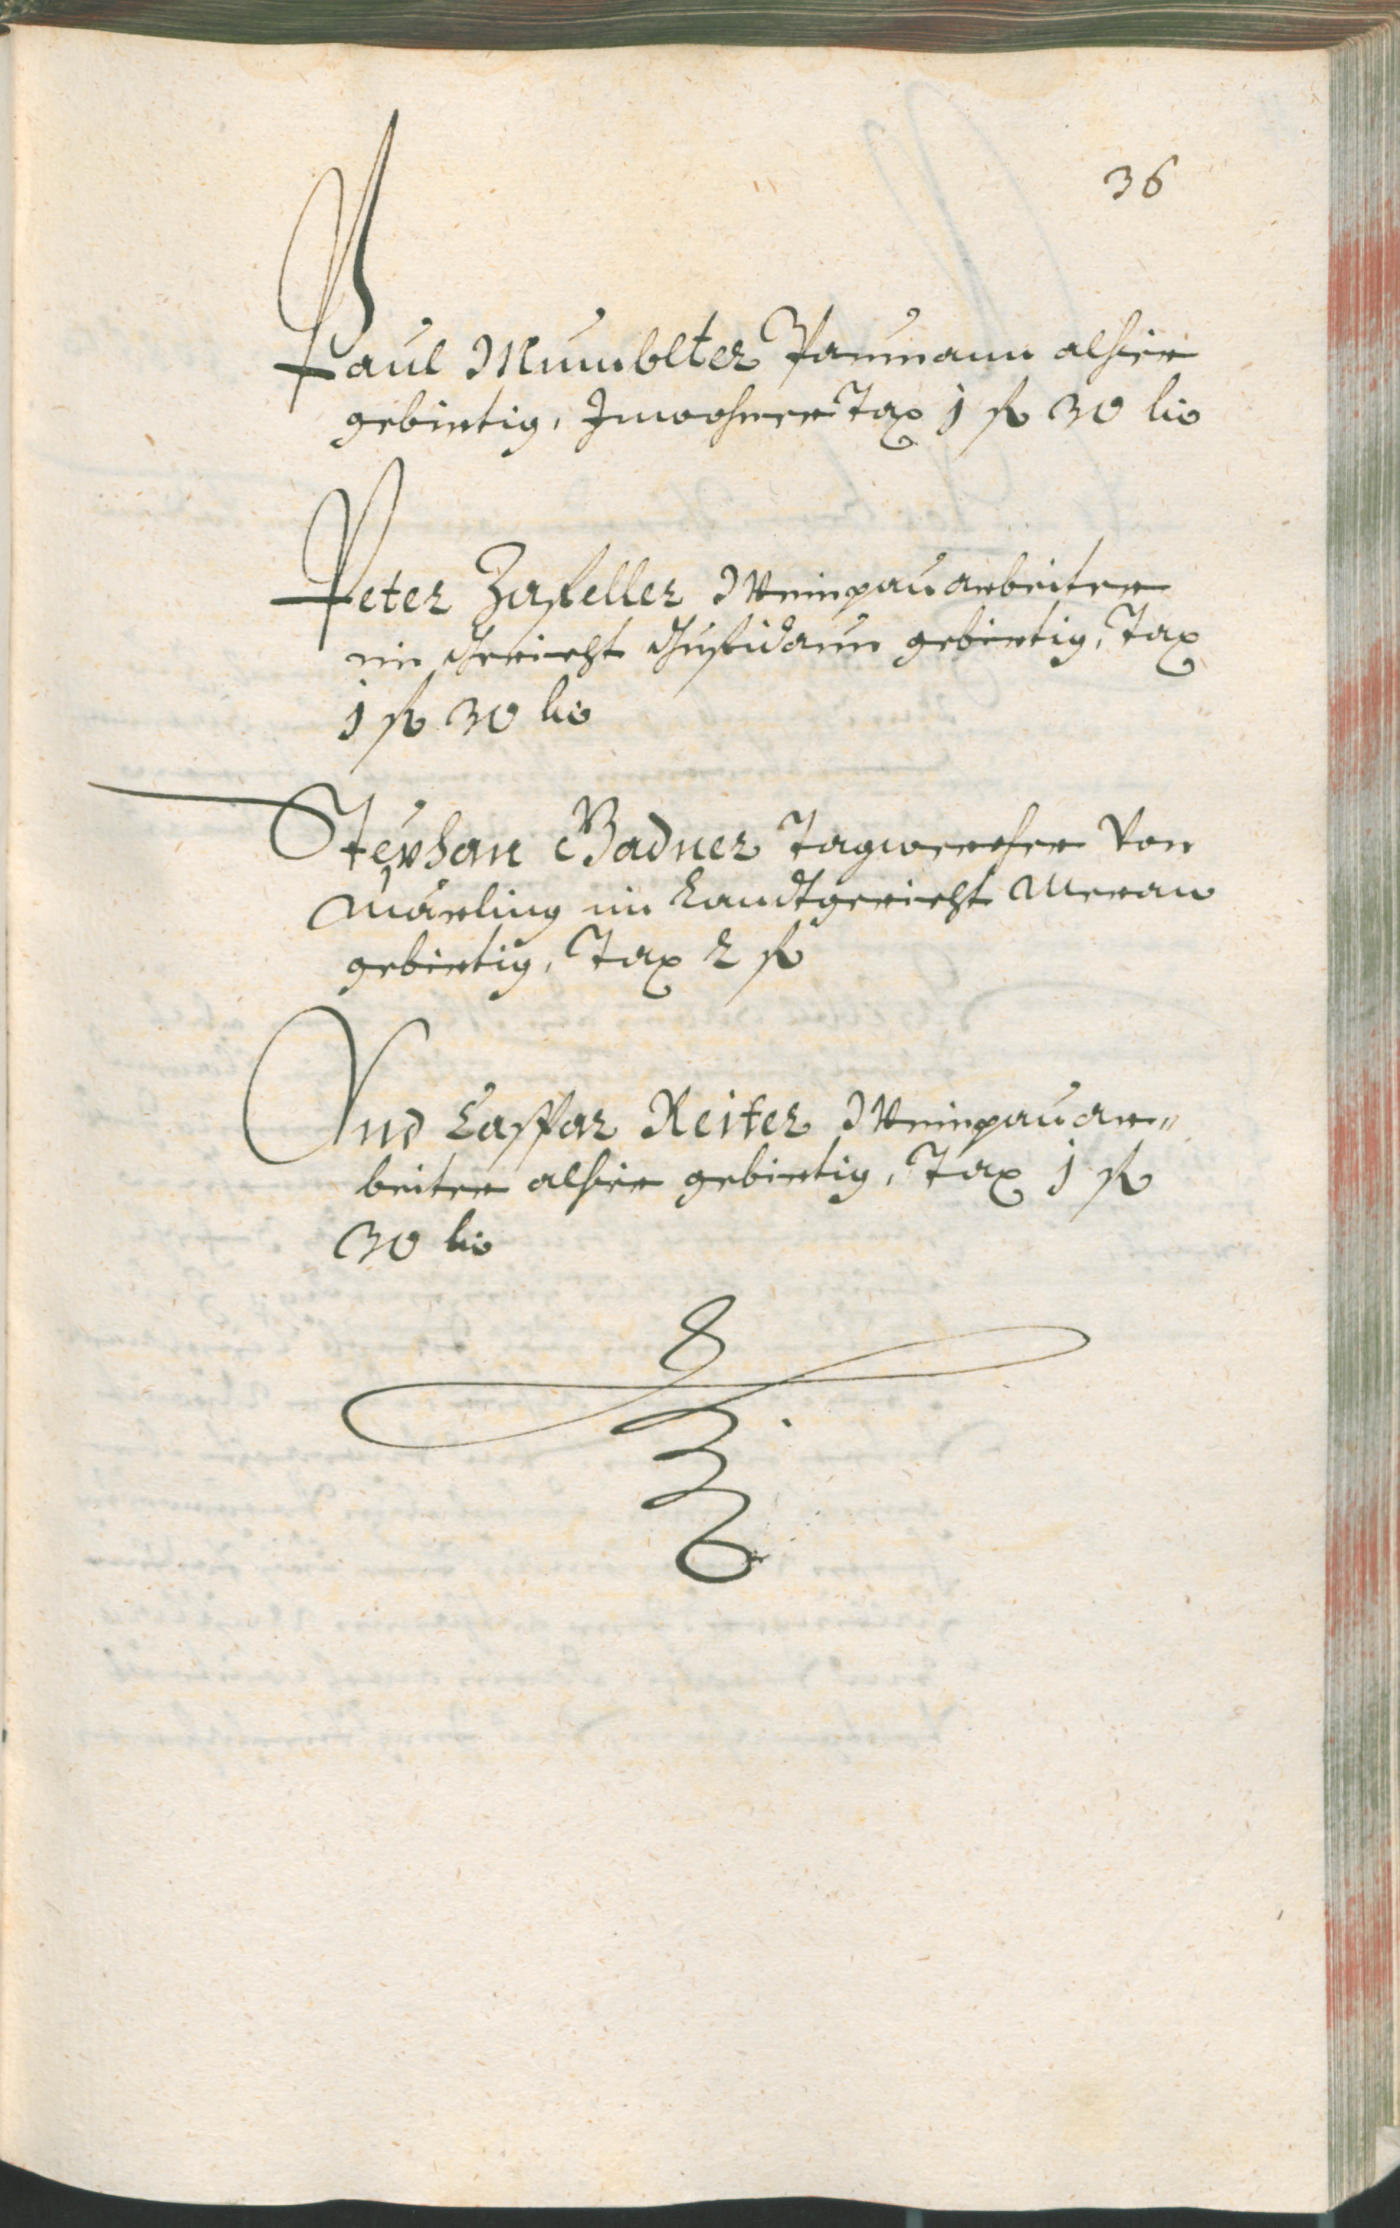 36
Paul Mumblter Paumann alhier
gebirtig, Inwohner Tax 1 fl 30 kr
Peter Zasteller Weinpauarbeiter
im Gericht Gufidaun gebirtig, Tax
1 fl 30 kr
Stephan Badner Tagwercher von
Märling im Landtgericht Meran
gebirtig, Tax 2 fl
Und Caspar Reiter Weinpauar-
beiter alhier gebirtig, Tax 1 fl
30 kr